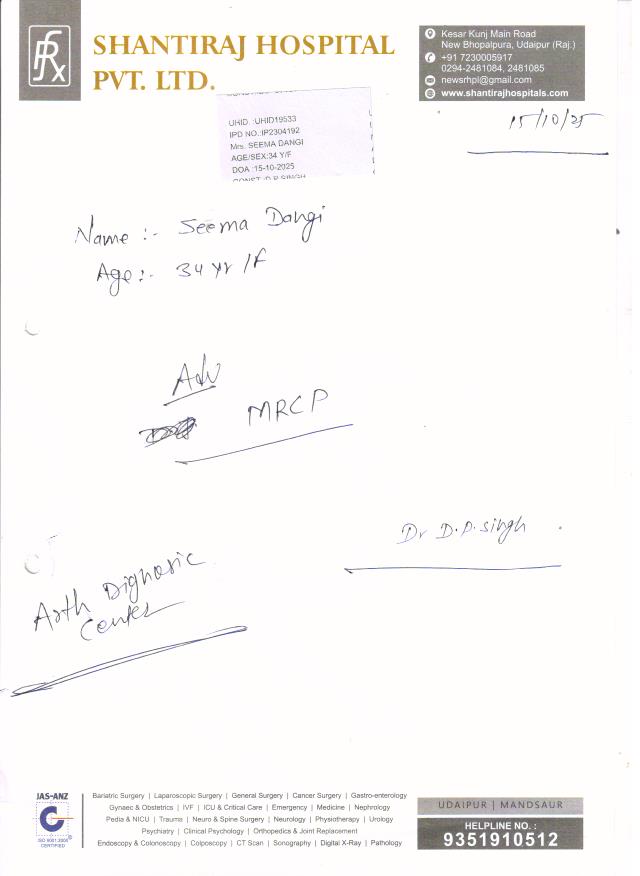 SHANTIRAJ HOSPITAL
PVT. LTD.
Kesar Kunj Main Road
New Bhopalpura, Udaipur (Raj.)
+91 7230005917
0294-2481084, 2481085
newsrhpl@gmail.com
www.shantirajhospitals.com
15/10/25
UHID. :UHID19533
IPD NO.:IP2304192
Mrs. SEEMA DANGI
AGE/SEX:34 Y/F
DOA :15-10-2025
CONST.:D.P.SINGH
Name :- Seema Dangi
Age :- 34 yr /F
Adv
MRCP
Dr D.P. Singh
Arth Dignostic
Center
JAS-ANZ
ISO 9001:2008
CERTIFIED
Bariatric Surgery | Laparoscopic Surgery | General Surgery | Cancer Surgery | Gastro-enterology
Gynaec & Obstetrics | IVF | ICU & Critical Care | Emergency | Medicine | Nephrology
Pedia & NICU | Trauma | Neuro & Spine Surgery | Neurology | Physiotherapy | Urology
Psychiatry | Clinical Psychology | Orthopedics & Joint Replacement
Endoscopy & Colonoscopy | Colposcopy | CT Scan | Sonography | Digital X-Ray | Pathology
UDAIPUR | MANDSAUR
HELPLINE NO. :
9351910512